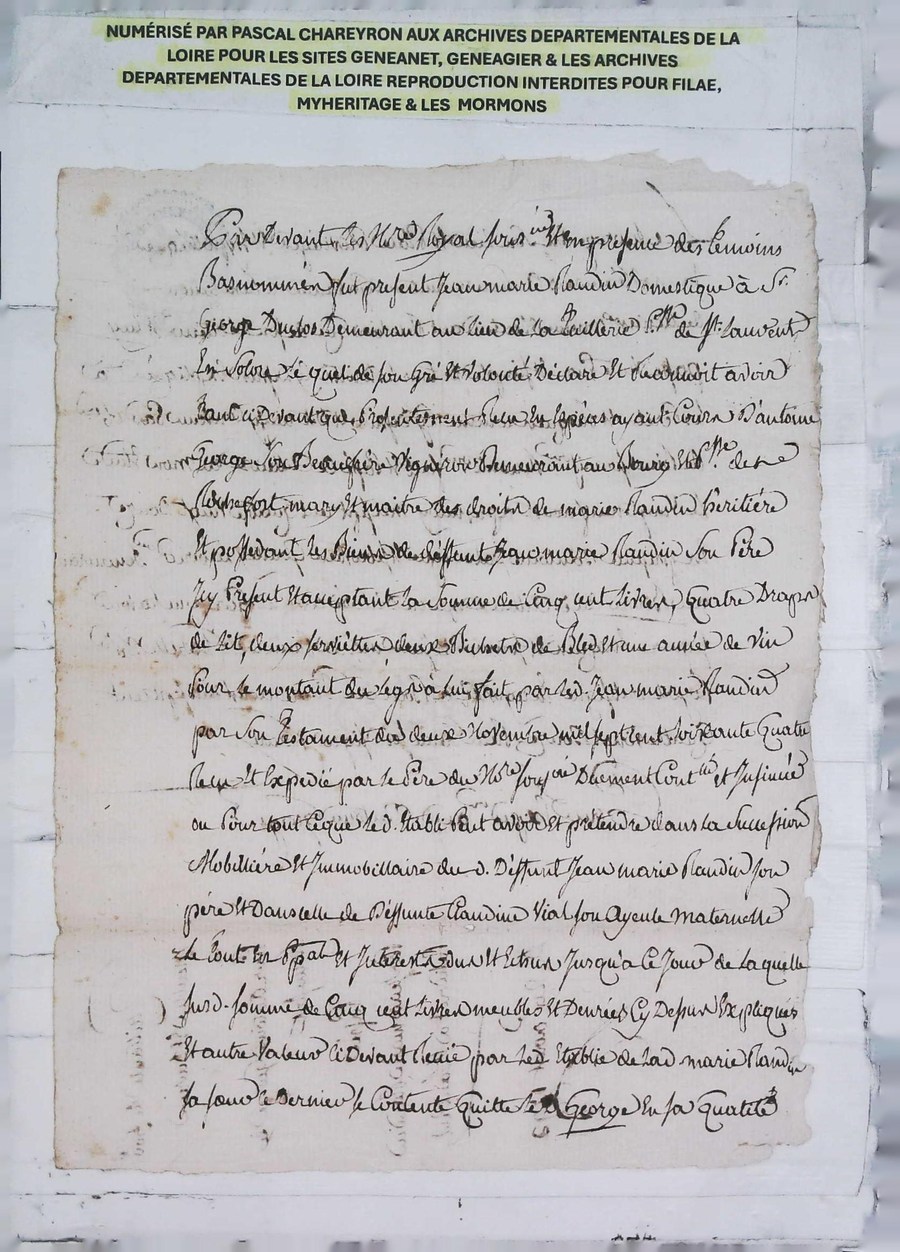 NUMÉRISÉ PAR PASCAL CHAREYRON AUX ARCHIVES DEPARTEMENTALES DE LA
LOIRE POUR LES SITES GENEANET, GENEAGIER & LES ARCHIVES
DEPARTEMENTALES DE LA LOIRE REPRODUCTION INTERDITES POUR FILAE,
MYHERITAGE & LES MORMONS
Par Devant les No.re Royal sous.né Et en presence des temoins
Basnommés fut present Jean marie Naudin Domestique à Sr.
George Demeurant au lieu de la P.sse de St. Laurent
En Solore Le quel de son Gré Et volonté Declare Et Reconnoit avoir
tant ci Devant que Presentement Recu En Espèces ayant Cours D'antoine
George Son Beaufrère Vigneron Demeurant au Bourg Et P.sse de
Rochefort mary Et maitre des droits de marie Naudin heritière
Et possedant les Biens de deffunt Jean marie Naudin Son Père
Icy Present Et acceptant La Somme de Cinq cent Livres, Quatre Draps
de Lit, deux serviettes deux Bichets de Bled Et une année de vin
Pour le montant du Legs à lui fait par led. Jean marie Naudin
par Son Testament du deux Novembre mil sept cent soixante Quatre
Recu Et Expedié par le Père du No.re sous.né Duement Cont.lé et Insinué
ou Pour tout Ceque Led. Etabli Peut avoir Et prétendre dans La Succession
Mobilliére Et Immobillaire du d. Déffunt Jean marie Naudin Son
père Et Dans celle de Déffunte Claudine Vial son Ayeule maternelle
Le tout En P.pal Et Interests dus Et Echus Jusqu'a Ce Jour de La quelle
susd. somme de Cinq cent Livres meubles Et Denrées Cy Dessus Expliquées
Et autre Valeur Ci Devant Recue par Led Etablie de Lad marie Naudin
sa sœur Ce Dernier se Contente Quitte le d George En sa Qualité